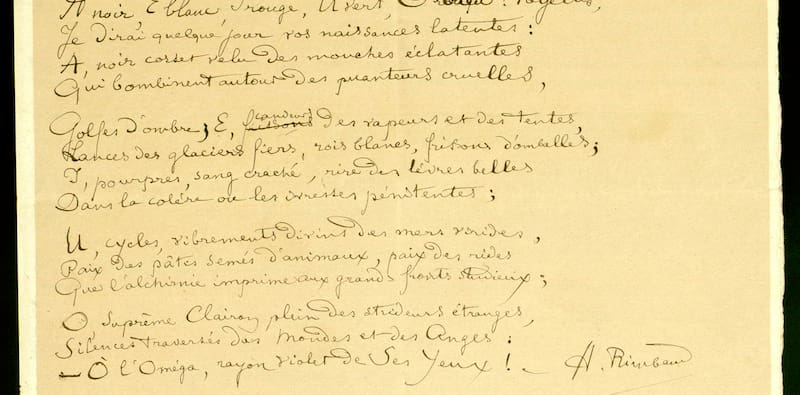 A noir E blanc I rouge, U vert, O bleu : voyelles,
Je dirai quelque jour vos naissances latentes :
A, noir corset velu des mouches éclatantes
Qui bombinent autour des puanteurs cruelles,
Golfes d'ombre ; E, candeurs des vapeurs et des tentes,
Lances des glaciers fiers, rois blancs, frissons d'ombelles ;
I, pourpres, sang craché, rire des lèvres belles
Dans la colère ou les ivresses pénitentes ;
U, cycles, vibrements divins des mers virides,
Paix des pâtis semés d'animaux, paix des rides
Que l'alchimie imprime aux grands fronts studieux ;
O, Suprême Clairon plein des strideurs étranges,
Silences traversés des Mondes et des Anges :
— O l'Oméga, rayon violet de Ses Yeux ! —
A. Rimbaud